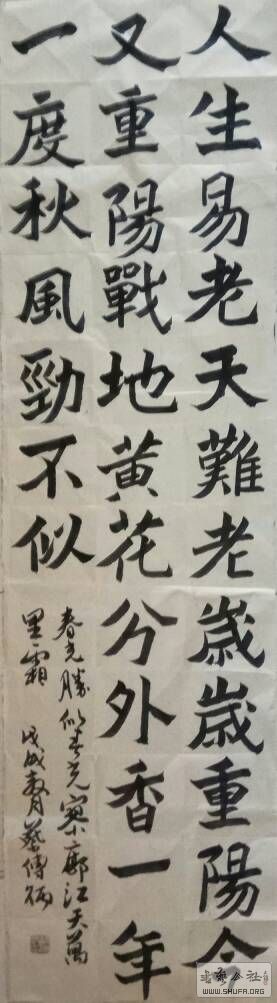 人生易老天難老歲歲重陽今
又重陽戰地黄花分外香一年
一度秋風勁不似
春光勝似春光寥廓江天萬
里霜 戊戌
書藝公社
WWW.SHUFA.ORG